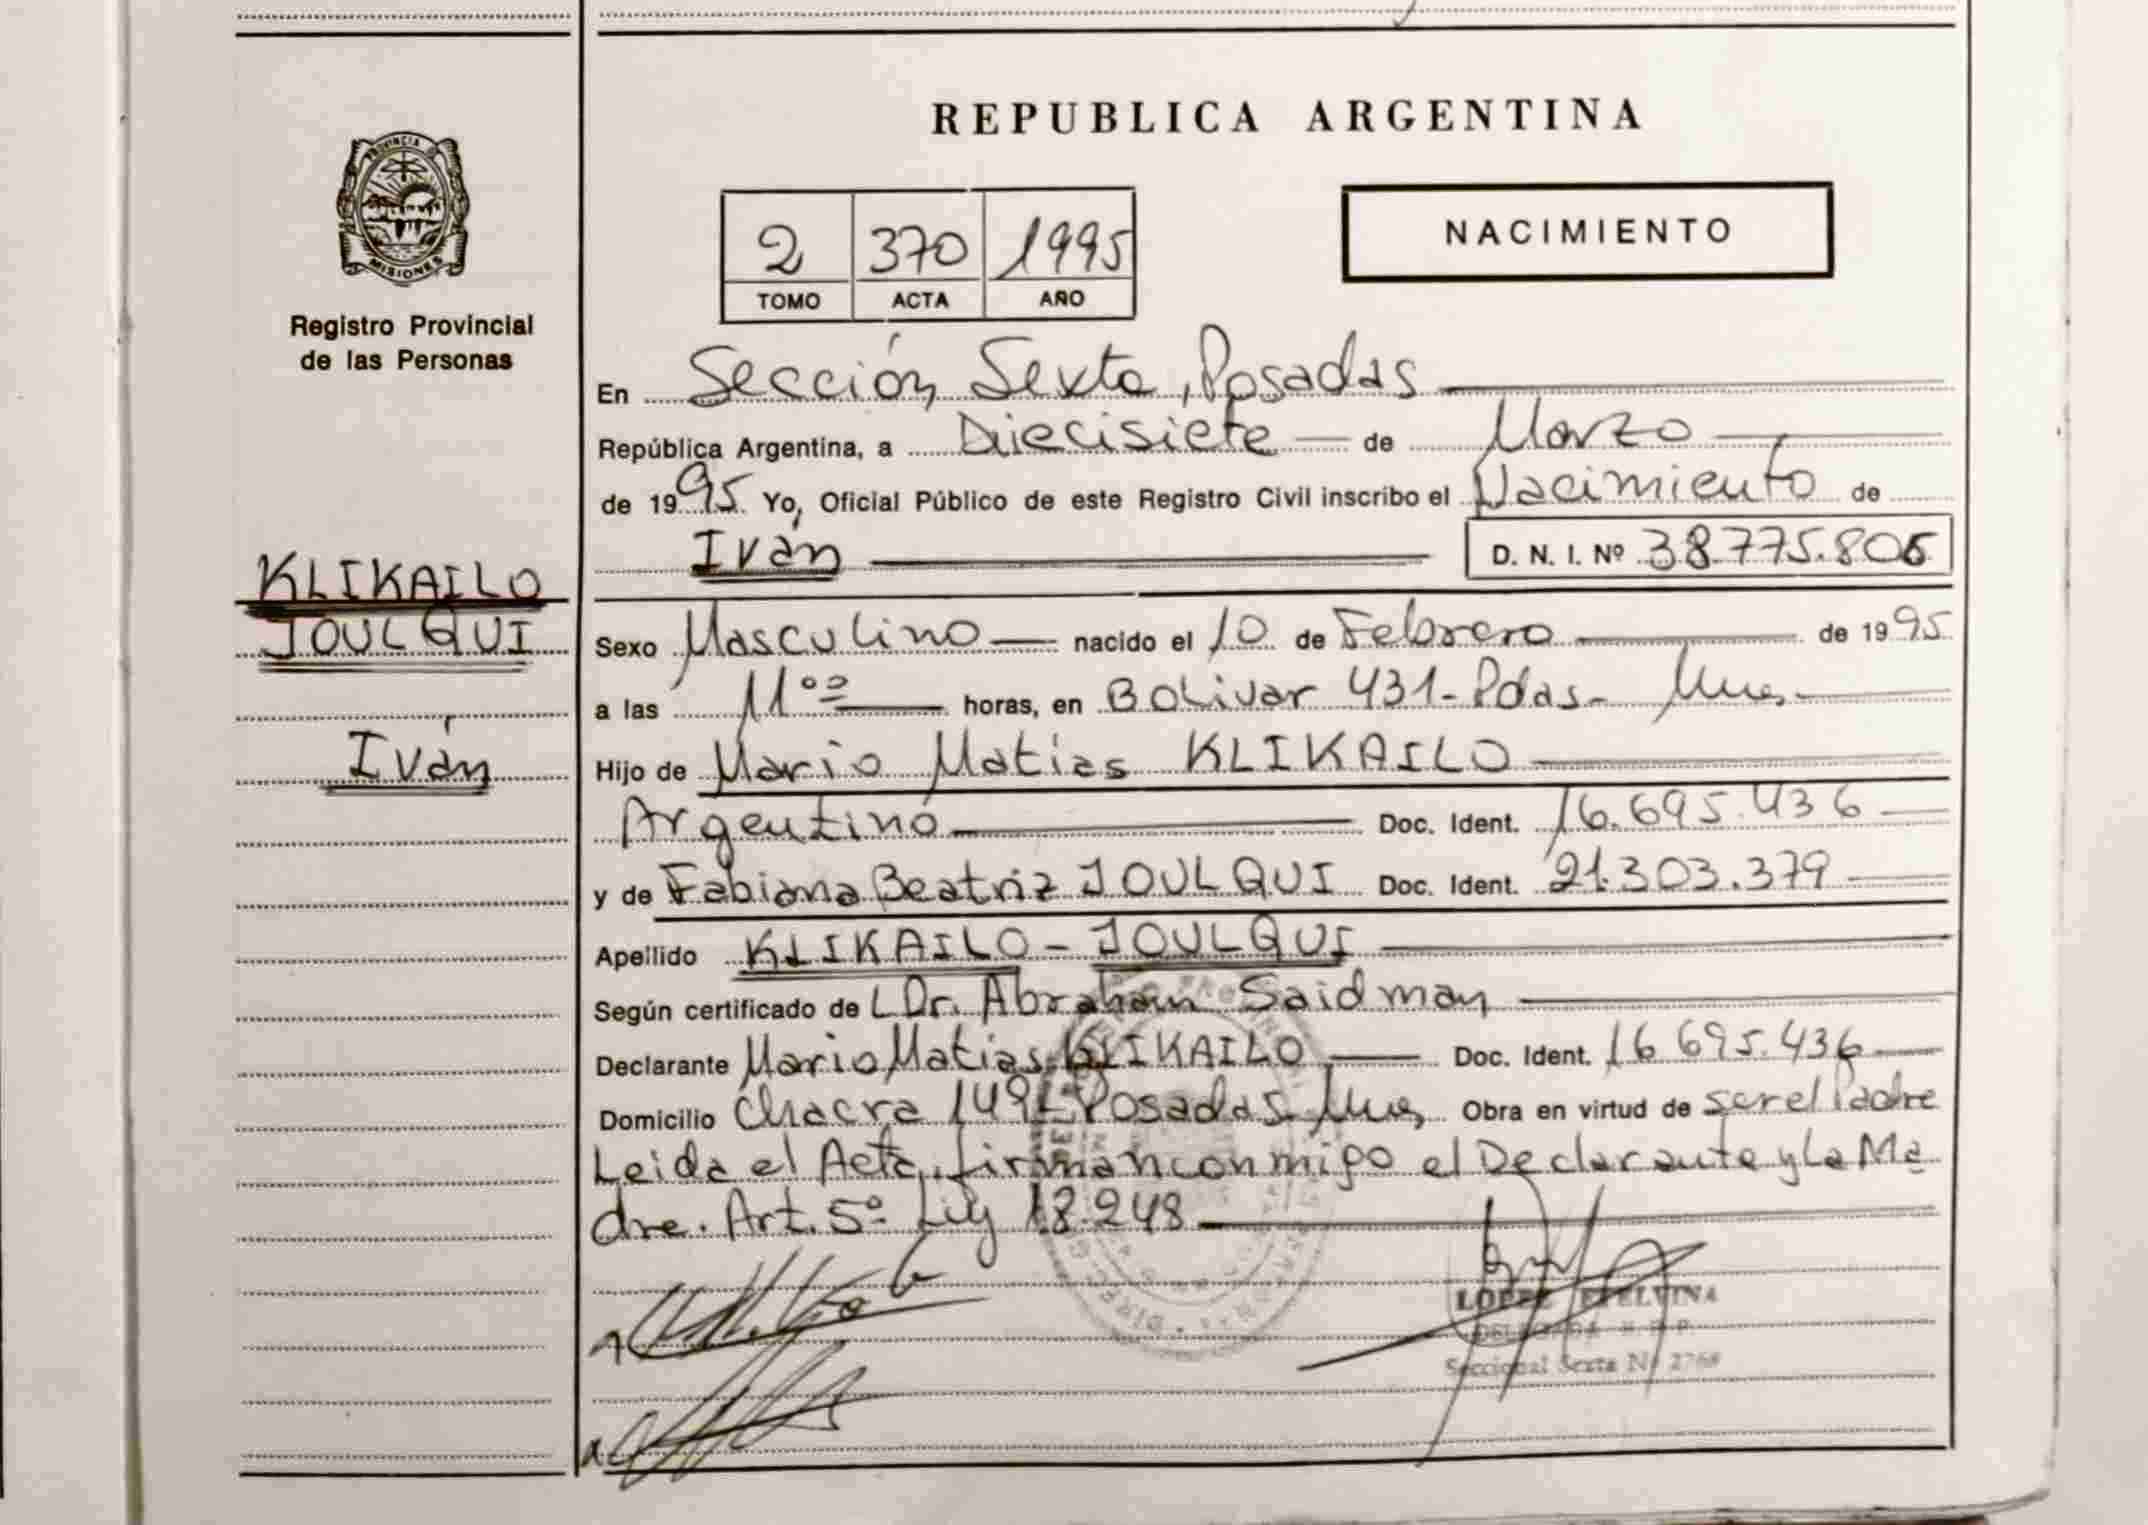 REPUBLICA ARGENTINA
PROVINCIA D
MISIONES
Registro Provincial
de las Personas
2 370 1995
TOMO ACTA AÑO
NACIMIENTO
En Sección Sexta, Posadas
República Argentina, a Diecisiete de Marzo
de 1995 Yo, Oficial Público de este Registro Civil inscribo el Nacimiento de
Iván D. N. I. Nº 38.775.806
KLIKAILO
JOULQUI
Iván
Sexo Masculino nacido el 10 de Febrero de 1995
a las 11°° horas, en Bolivar 431-Pdas- Mnes-
Hijo de Mario Matias KLIKAILO
Argentino Doc. Ident. 16.695.436
y de Fabiana Beatriz JOULQUI Doc. Ident. 21.303.379
Apellido KLIKAILO - JOULQUI
Según certificado de L Dr. Abraham Saidman
Declarante Mario Matias KLIKAILO Doc. Ident. 16.695.436
Domicilio Chacra 149 Posadas Mnes Obra en virtud de ser el Padre
Leida el Acta, firman conmigo el Declarante y la Ma
dre. Art. 5º Ley 18.248
LOPEZ ETELVINA
DELEGADA R. P. P.
Seccional Sexta Nº 2768